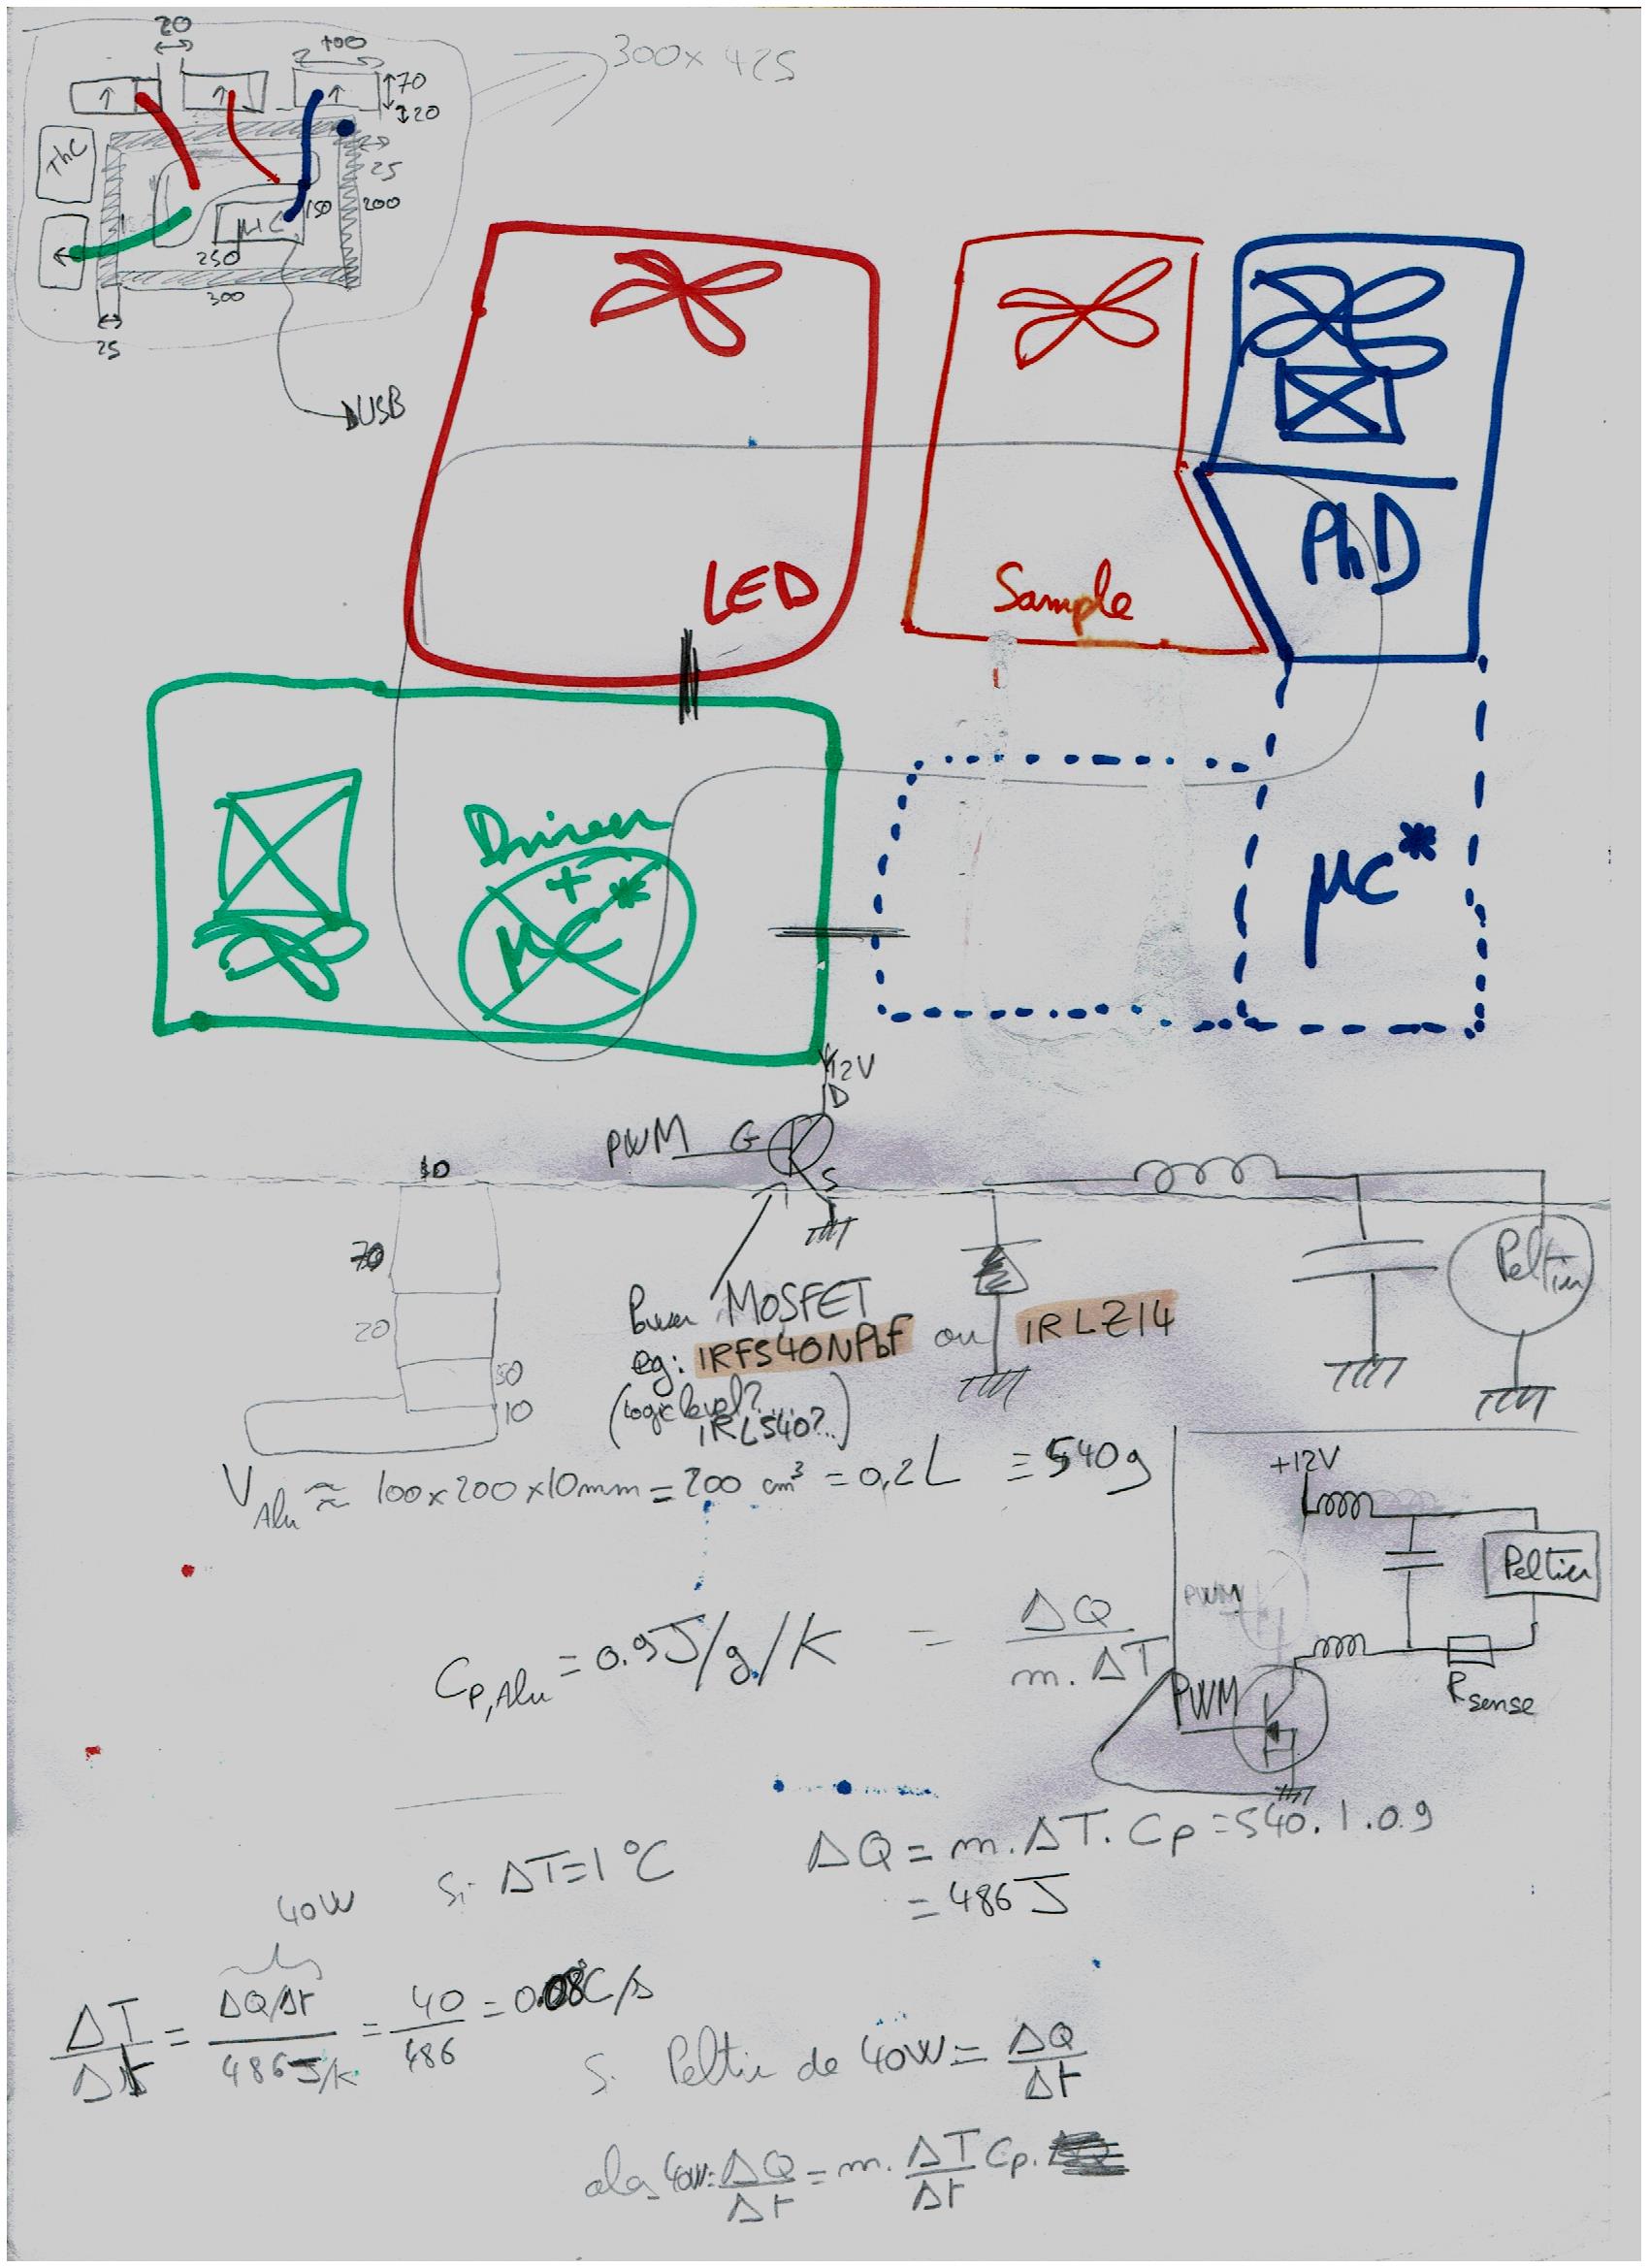 20
100
300 x 425
70
20
ThC
25
150
200
µC
250
300
25
USB
LED
Sample
PhD
Driver
+
µC*
µC*
12V
D
PWM G
S
10
70
20
50
10
Power MOSFET
eg: IRF540NPbF ou IRLZ14
(Logic level?
IRL540?..)
Peltier
V Alu ≈ 100 x 200 x 10mm = 200 cm³ = 0,2L ≡ 540g
+12V
Peltier
PWM
Cp,Alu = 0.9J/g/K = ΔQ / m.ΔT
PWM
Rsense
Si ΔT=1°C ΔQ = m.ΔT.Cp = 540.1.0.9
= 486J
40W
ΔT/Δt = ΔQ/Δt / 486J/K = 40/486 = 0.08°C/s
Si Peltier de 40W = ΔQ/Δt
alors 40W: ΔQ/Δt = m. ΔT/Δt Cp.